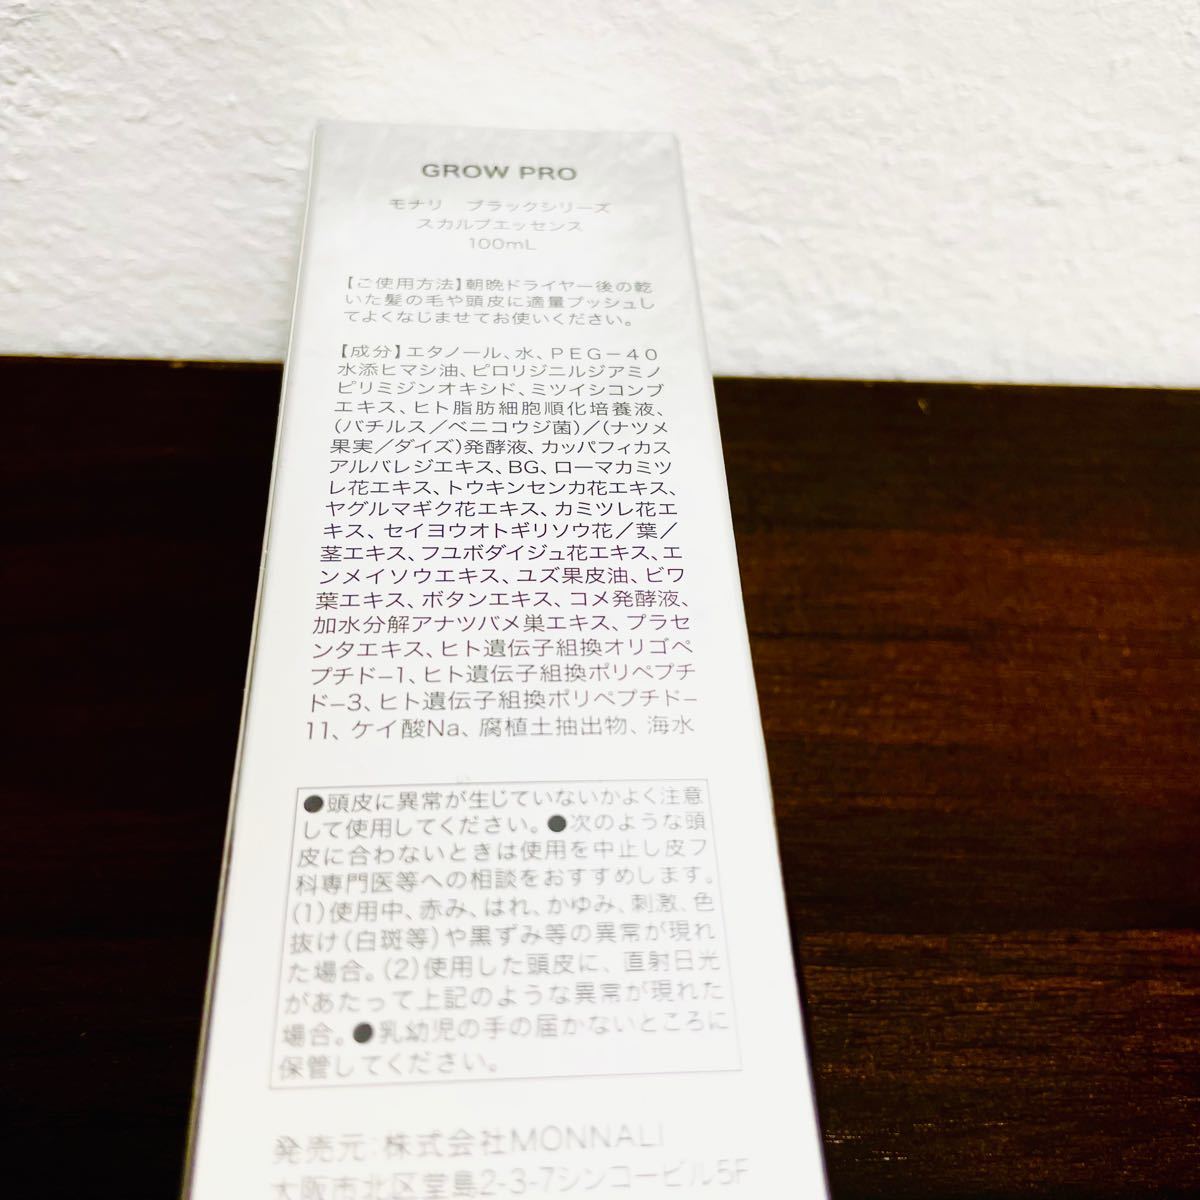 GROW PRO
モナリ ブラックシリーズ
スカルプエッセンス
100mL
【ご使用方法】朝晩ドライヤー後の乾
いた髪の毛や頭皮に適量プッシュし
てよくなじませてお使いください。
【成分】エタノール、水、PEG-40
水添ヒマシ油、ピロリジニルジアミノ
ピリミジンオキシド、ミツイシコンブ
エキス、ヒト脂肪細胞順化培養液、
(バチルス/ベニコウジ菌)/(ナツメ
果実/ダイズ)発酵液、カッパフィカス
アルバレジエキス、BG、ローマカミツ
レ花エキス、トウキンセンカ花エキス、
ヤグルマギク花エキス、カミツレ花エ
キス、セイヨウオトギリソウ花/葉/
茎エキス、フユボダイジュ花エキス、エ
ンメイソウエキス、ユズ果皮油、ビワ
葉エキス、ボタンエキス、コメ発酵液、
加水分解アナツバメ巣エキス、プラセ
ンタエキス、ヒト遺伝子組換オリゴペ
プチド-1、ヒト遺伝子組換ポリペプチ
ド-3、ヒト遺伝子組換ポリペプチド-
11、ケイ酸Na、腐植土抽出物、海水
●頭皮に異常が生じていないかよく注意
して使用してください。●次のような頭
皮に合わないときは使用を中止し皮フ
科専門医等への相談をおすすめします。
(1)使用中、赤み、はれ、かゆみ、刺激、色
抜け(白斑等)や黒ずみ等の異常が現れ
た場合。(2)使用した頭皮に、直射日光
があたって上記のような異常が現れた
場合。●乳幼児の手の届かないところに
保管してください。
発売元:株式会社MONNALI
大阪市北区堂島2-3-7シンコービル5F